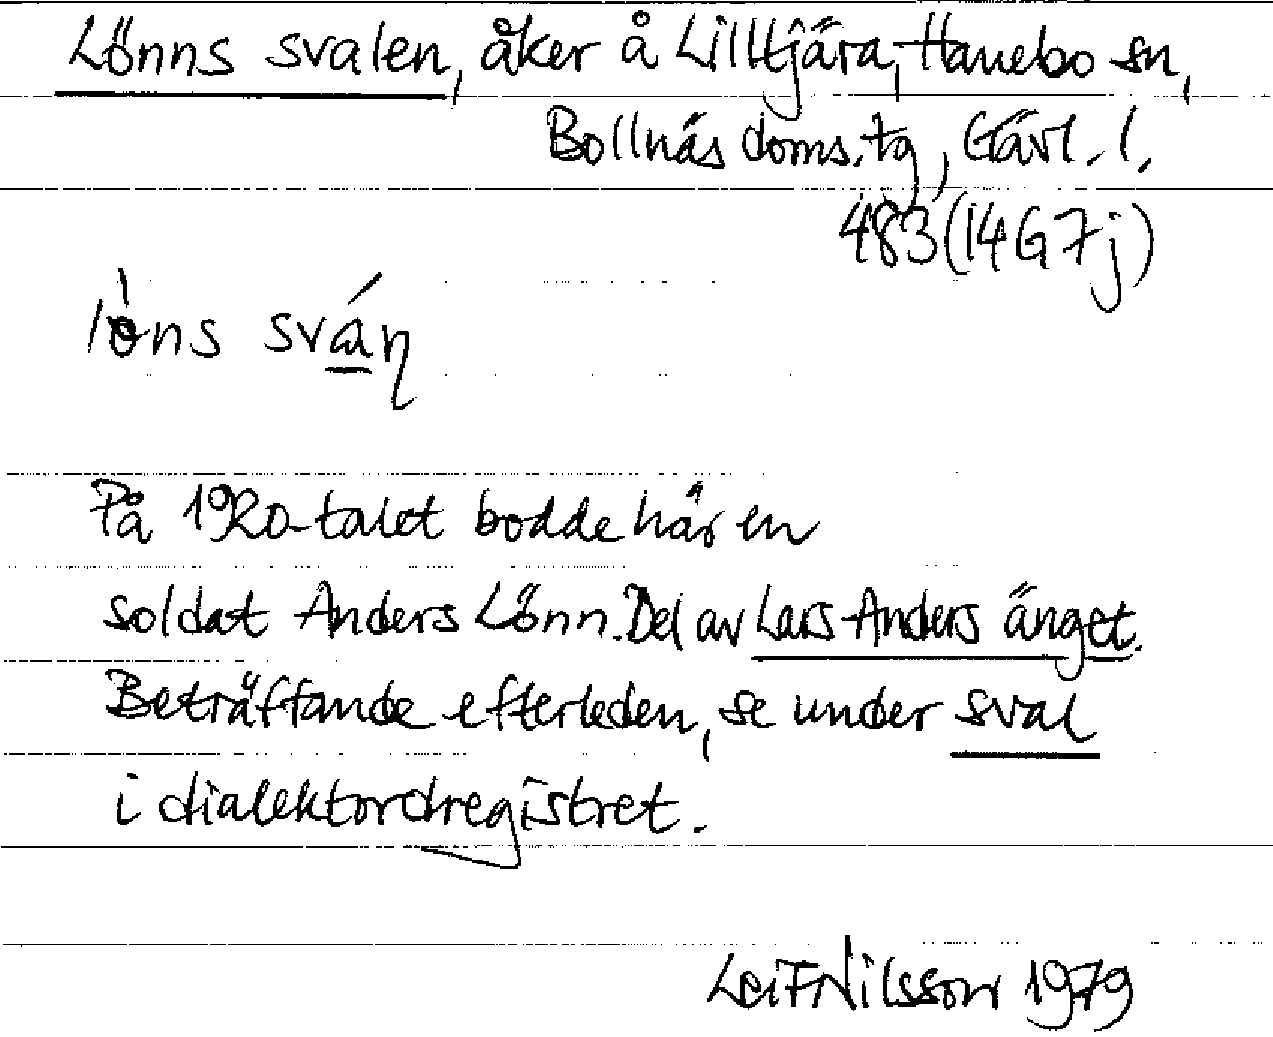 Lönns svalen, åker å Lilltjära, Hanebo sn,
Bollnäs doms.tg, Gävl. l.
483 (14G7j)
På 1920-talet bodde här en
soldat Anders Lönn. Del av Lars-Anders änget.
Beträffande efterleden, se under sval
i dialektordregistret.
Leif Nilsson 1979